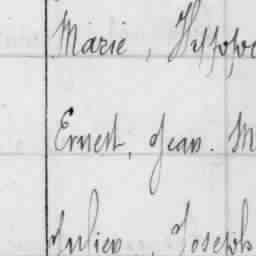 Marie, Hyppo
Ernest, Jean. M
Julien, Joseph